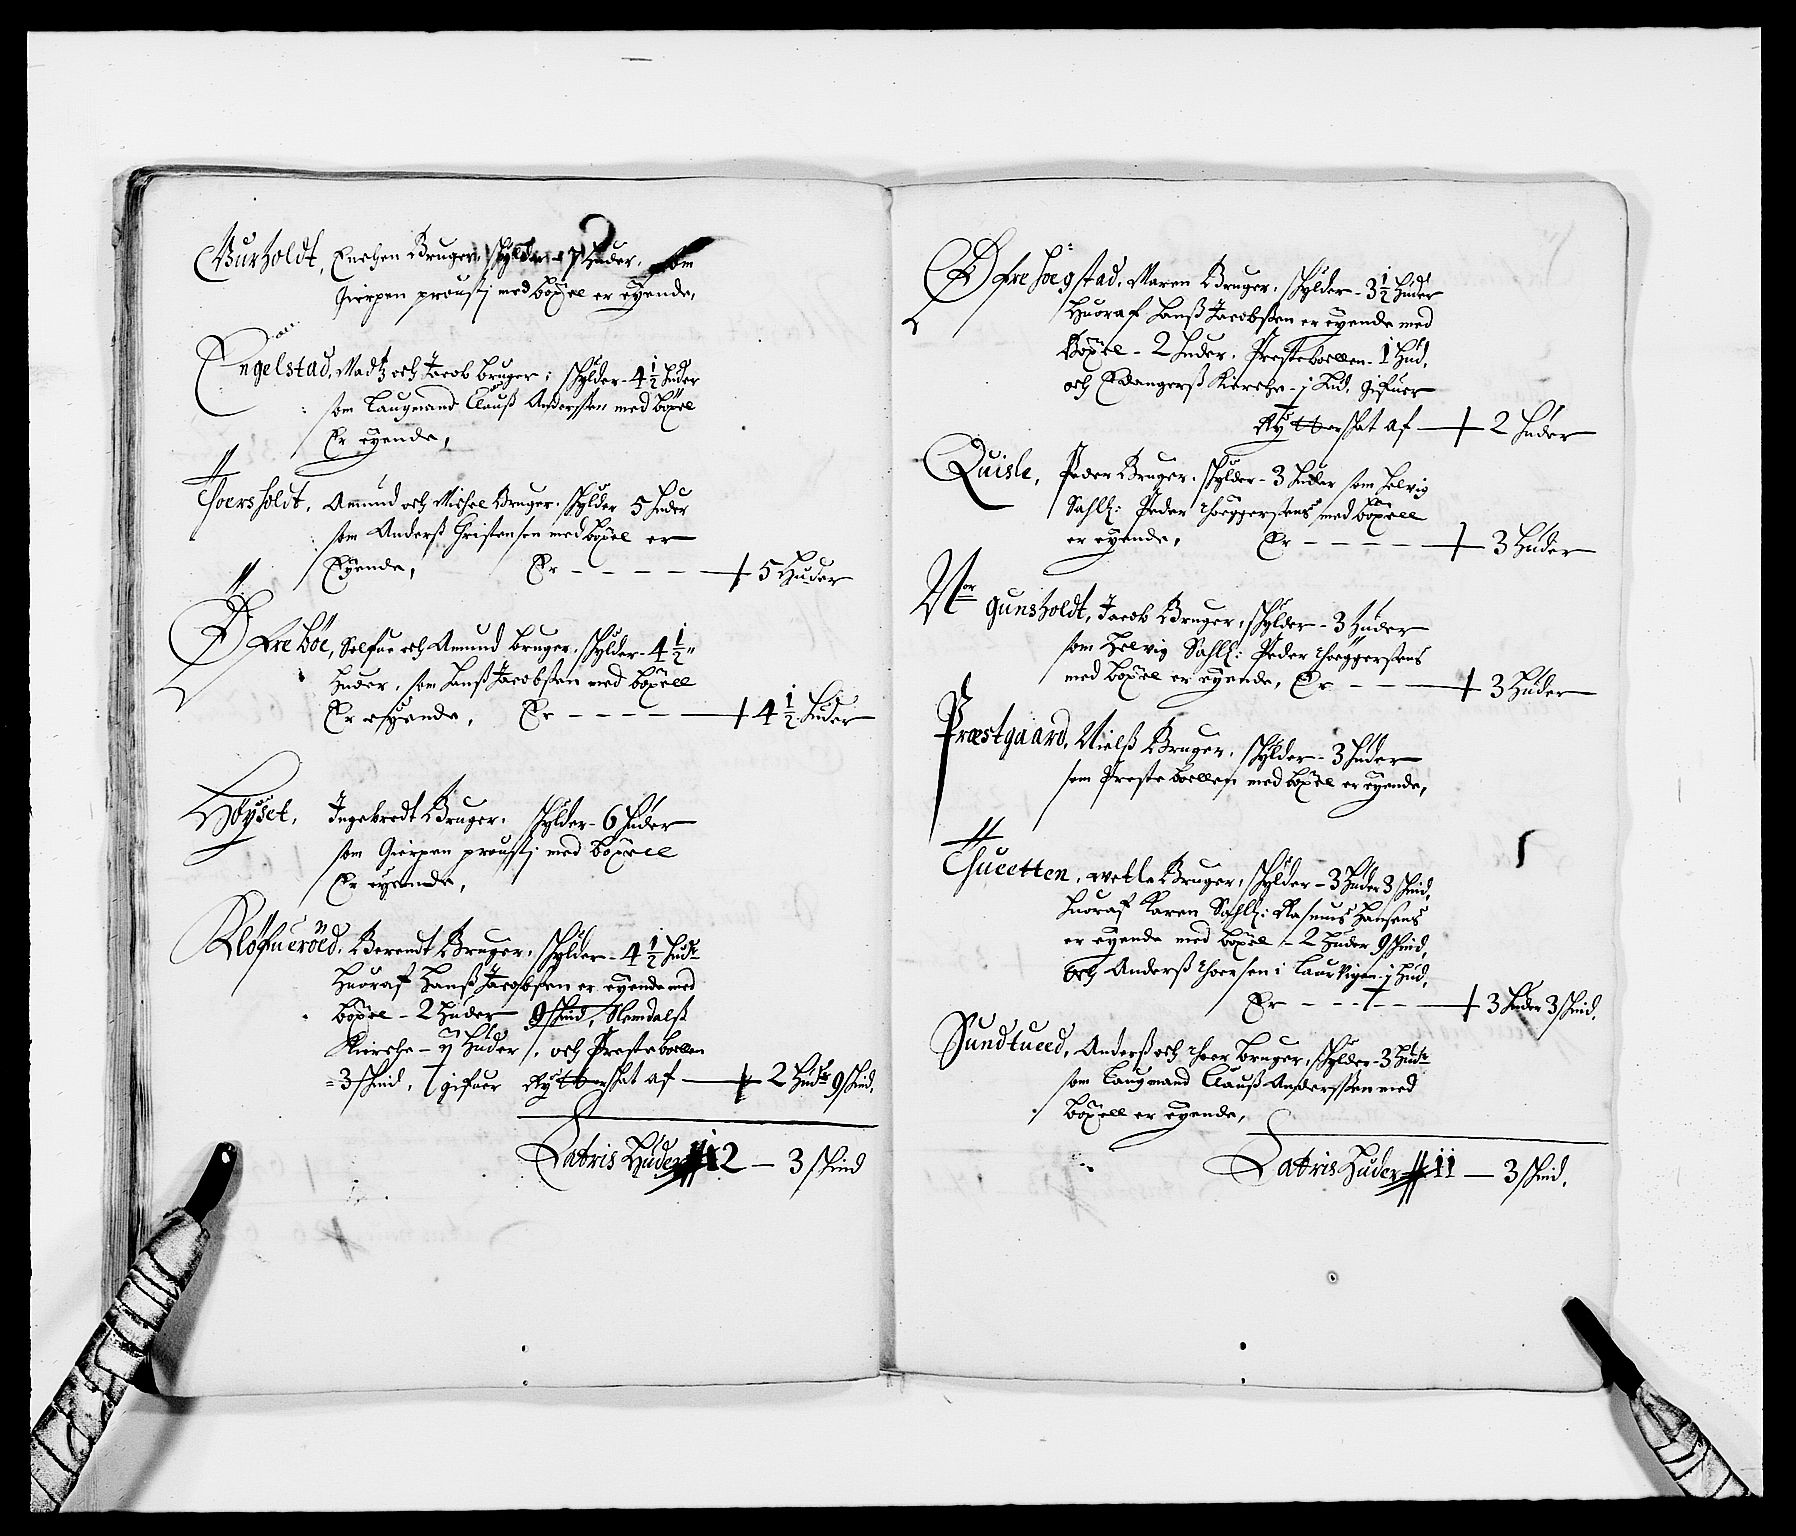 Burholdt, Enchen Bruger, skylder - 7 Huder, som
Gierpen proustj med böxel er eyende,
Engelstad, Madtz och Jacob bruger, skylder - 4 1/2 Huder
som Laugmand Clauß Anderssen med böxel
Er eyende,
Thorsholdt, Amund och Michel Bruger, skylder 5 Huder
som Anderß Christensen med böxel er
Eyende, Er - - - - - 5 Huder
Øfre böe, och Amund bruger, skylder - 4 1/2
Huder, som Hanß Jacobßen med böxell
Er eyende, Er - - - - - 4 1/2 Huder
Høyset, Ingebredt Bruger, skylder - 6 Huder
som Gierpen proustj med böxell
Er eyende,
Kløfueröed, Berendt Bruger, skylder - 4 1/2 Hudr
Huoraf Hanß Jacobßen er eyende med
böxel - 2 Huder 9 skind, Slemdalß
Kierche - ij Huder, och Presteboellen
- 3 skind, gifuer Rytterskat af — 2 Hudr 9 skind,
Latris Huder 12 — 3 skind
Øfre Hoegstad, Maren Bruger, skylder - 3 1/2 Huder
Huoraf Hanß Jacobßen er eyende med
Böxel - 2 Huder, Presteboellen - 1 Hud,
och Edangerß Kierche - j Hud, gifuer
Rytterskat af — 2 Huder
Quisle, Peder Bruger, skylder - 3 Huder som Helvig
Sahlig: Peder med böxell
er eyende, Er - - - - - 3 Huder
Nor gunsholdt, Jacob Bruger, skylder - 3 Huder
som Helvig Sahlig: Peder
med böxel er eyende, Er - - - 3 Huder
Præstgaard, Nielß Bruger, skylder - 3 Huder
som Presteboellen med böxel er eyende,
Thuetten, wetle Bruger, skylder - 3 Huder 3 skind,
Huoraf Karen Sahlig: Rasmus Hansens
er eyende med böxel - 2 Huder 9 skind,
och Anderß Thorsen i Laurvigen - j Hud,
Er - - - - - 3 Huder 3 skind,
Sundtued, Anderß och Thor bruger, skylder - 3 Hudr
som Laugmand Clauß Anderssen med
böxell er eyende,
Latris Huder 11 — 3 skind,